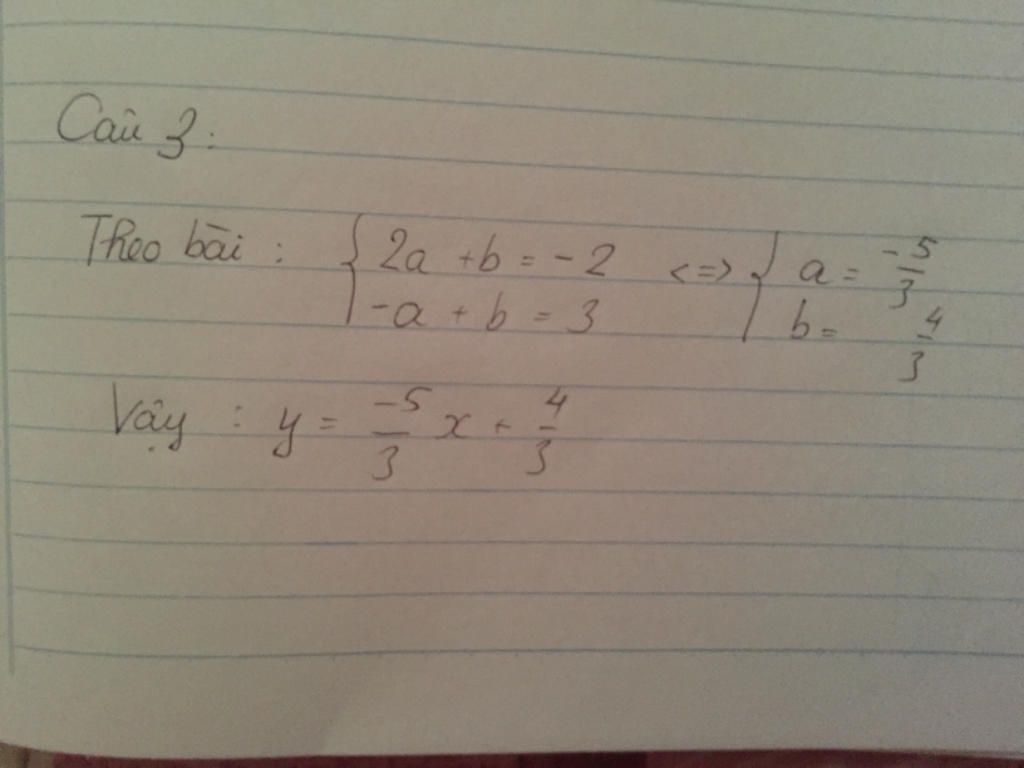 Câu 3:
Theo bài : { 2a + b = -2 <=> { a = -5/3
-a + b = 3 b = 4/3
Vậy : y = -5/3 x + 4/3